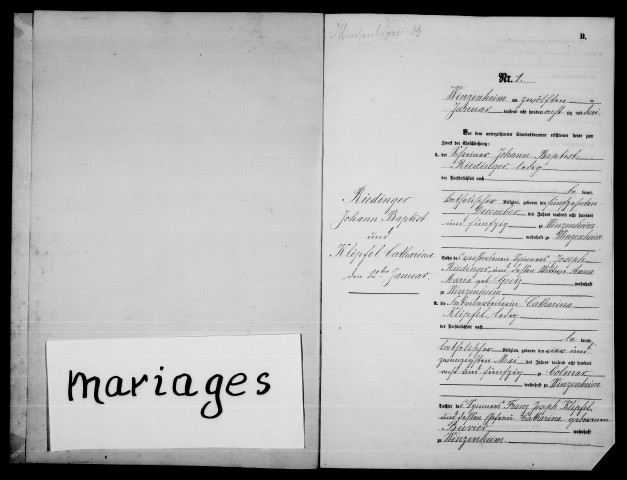 mariages
B.
Nr. 1.
Winzenheim am zwölften
Januar tausend acht hundert und
Vor dem unterzeichneten Standesbeamten erschienen heute zum
Zweck der Eheschließung:
1. der Johann Baptist
Riedinger ledig
der Persönlichkeit nach
kannt,
katholischer Religion, geboren den fünfzehnten
December des Jahres tausend acht hundert
und fünfzig zu Winzenheim
wohnhaft zu Winzenheim
Sohn des verstorbenen Joseph
Riedinger und dessen Wittwe Anna
Maria geb. wohnhaft
zu Winzenheim
2. die Fabrikarbeiterin Catharina
Klipfel, ledig
der Persönlichkeit nach
kannt,
katholischer Religion, geboren den und
zwanzigsten Mai des Jahres tausend acht hundert
und fünfzig zu Colmar
wohnhaft zu Winzenheim
Tochter des Franz Joseph Klipfel
und dessen Ehefrau Catherina geborenen
wohnhaft
zu Winzenheim
Riedinger
Johann Baptist
und
Klipfel Catharina
den 12ten Januar